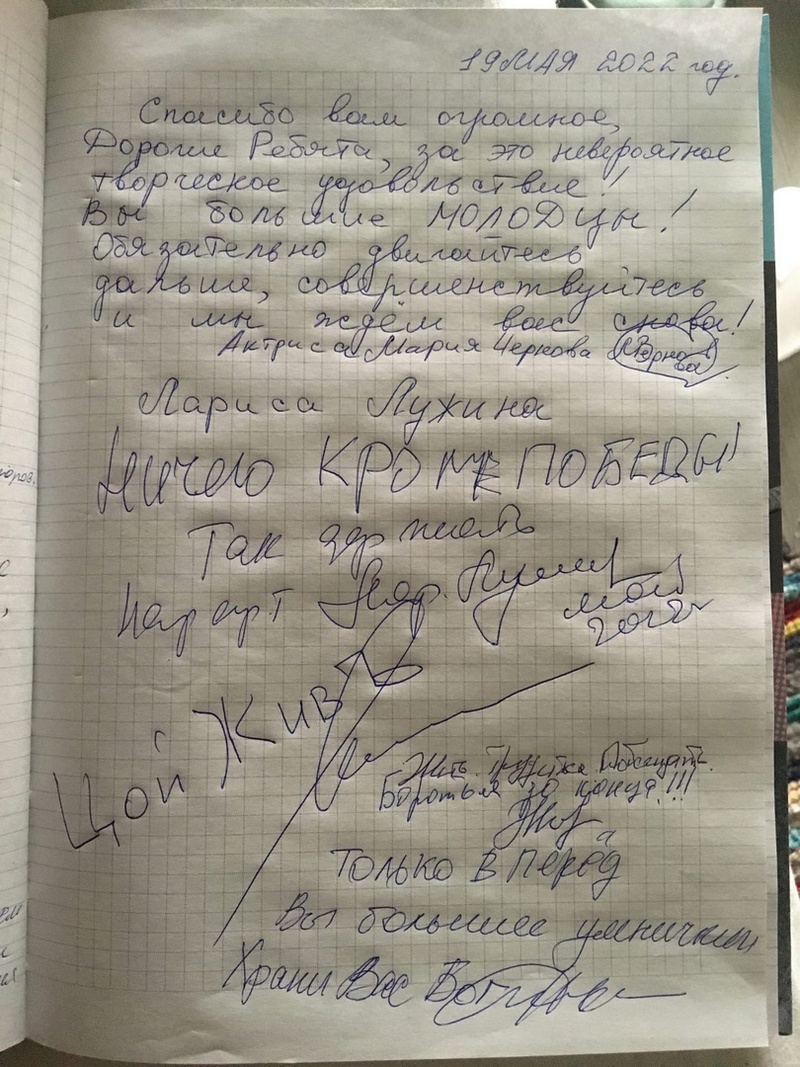 19 МАЯ 2022 год.
Спасибо вам огромное,
Дорогие Ребята, за это невероятное
творческое удовольствие!
Вы большие МОЛОДцы!
Обязательно двигайтесь
дальше, совершенствуйтесь
и мы ждём вас снова!
Актриса Мария Чернова
Лариса Лужина
Ничего КРОМЕ ПОБЕДЫ!
Так держать
Нар арт
май
2022
Цой Жив
Жить.
Бороться до конца!!!
Только вперёд
Вы большие умнички
Храни Вас Бог